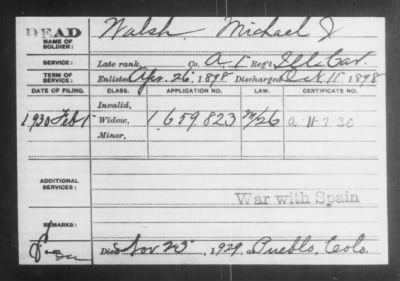 DEAD
Walsh, Michael J
NAME OF SOLDIER:
SERVICE: Late rank, Co. A, 1 Reg't Ills Cav.
TERM OF SERVICE: Enlisted Apr. 26, 1898 Discharged Oct 11, 1898
DATE OF FILING. CLASS. APPLICATION NO. LAW. CERTIFICATE NO.
Invalid,
1930 Feb 1 Widow, 1659823 A-11-7-30
Minor,
ADDITIONAL SERVICES:
War with Spain
REMARKS:
Died Nov 25, 1929, at Pueblo, Colo.